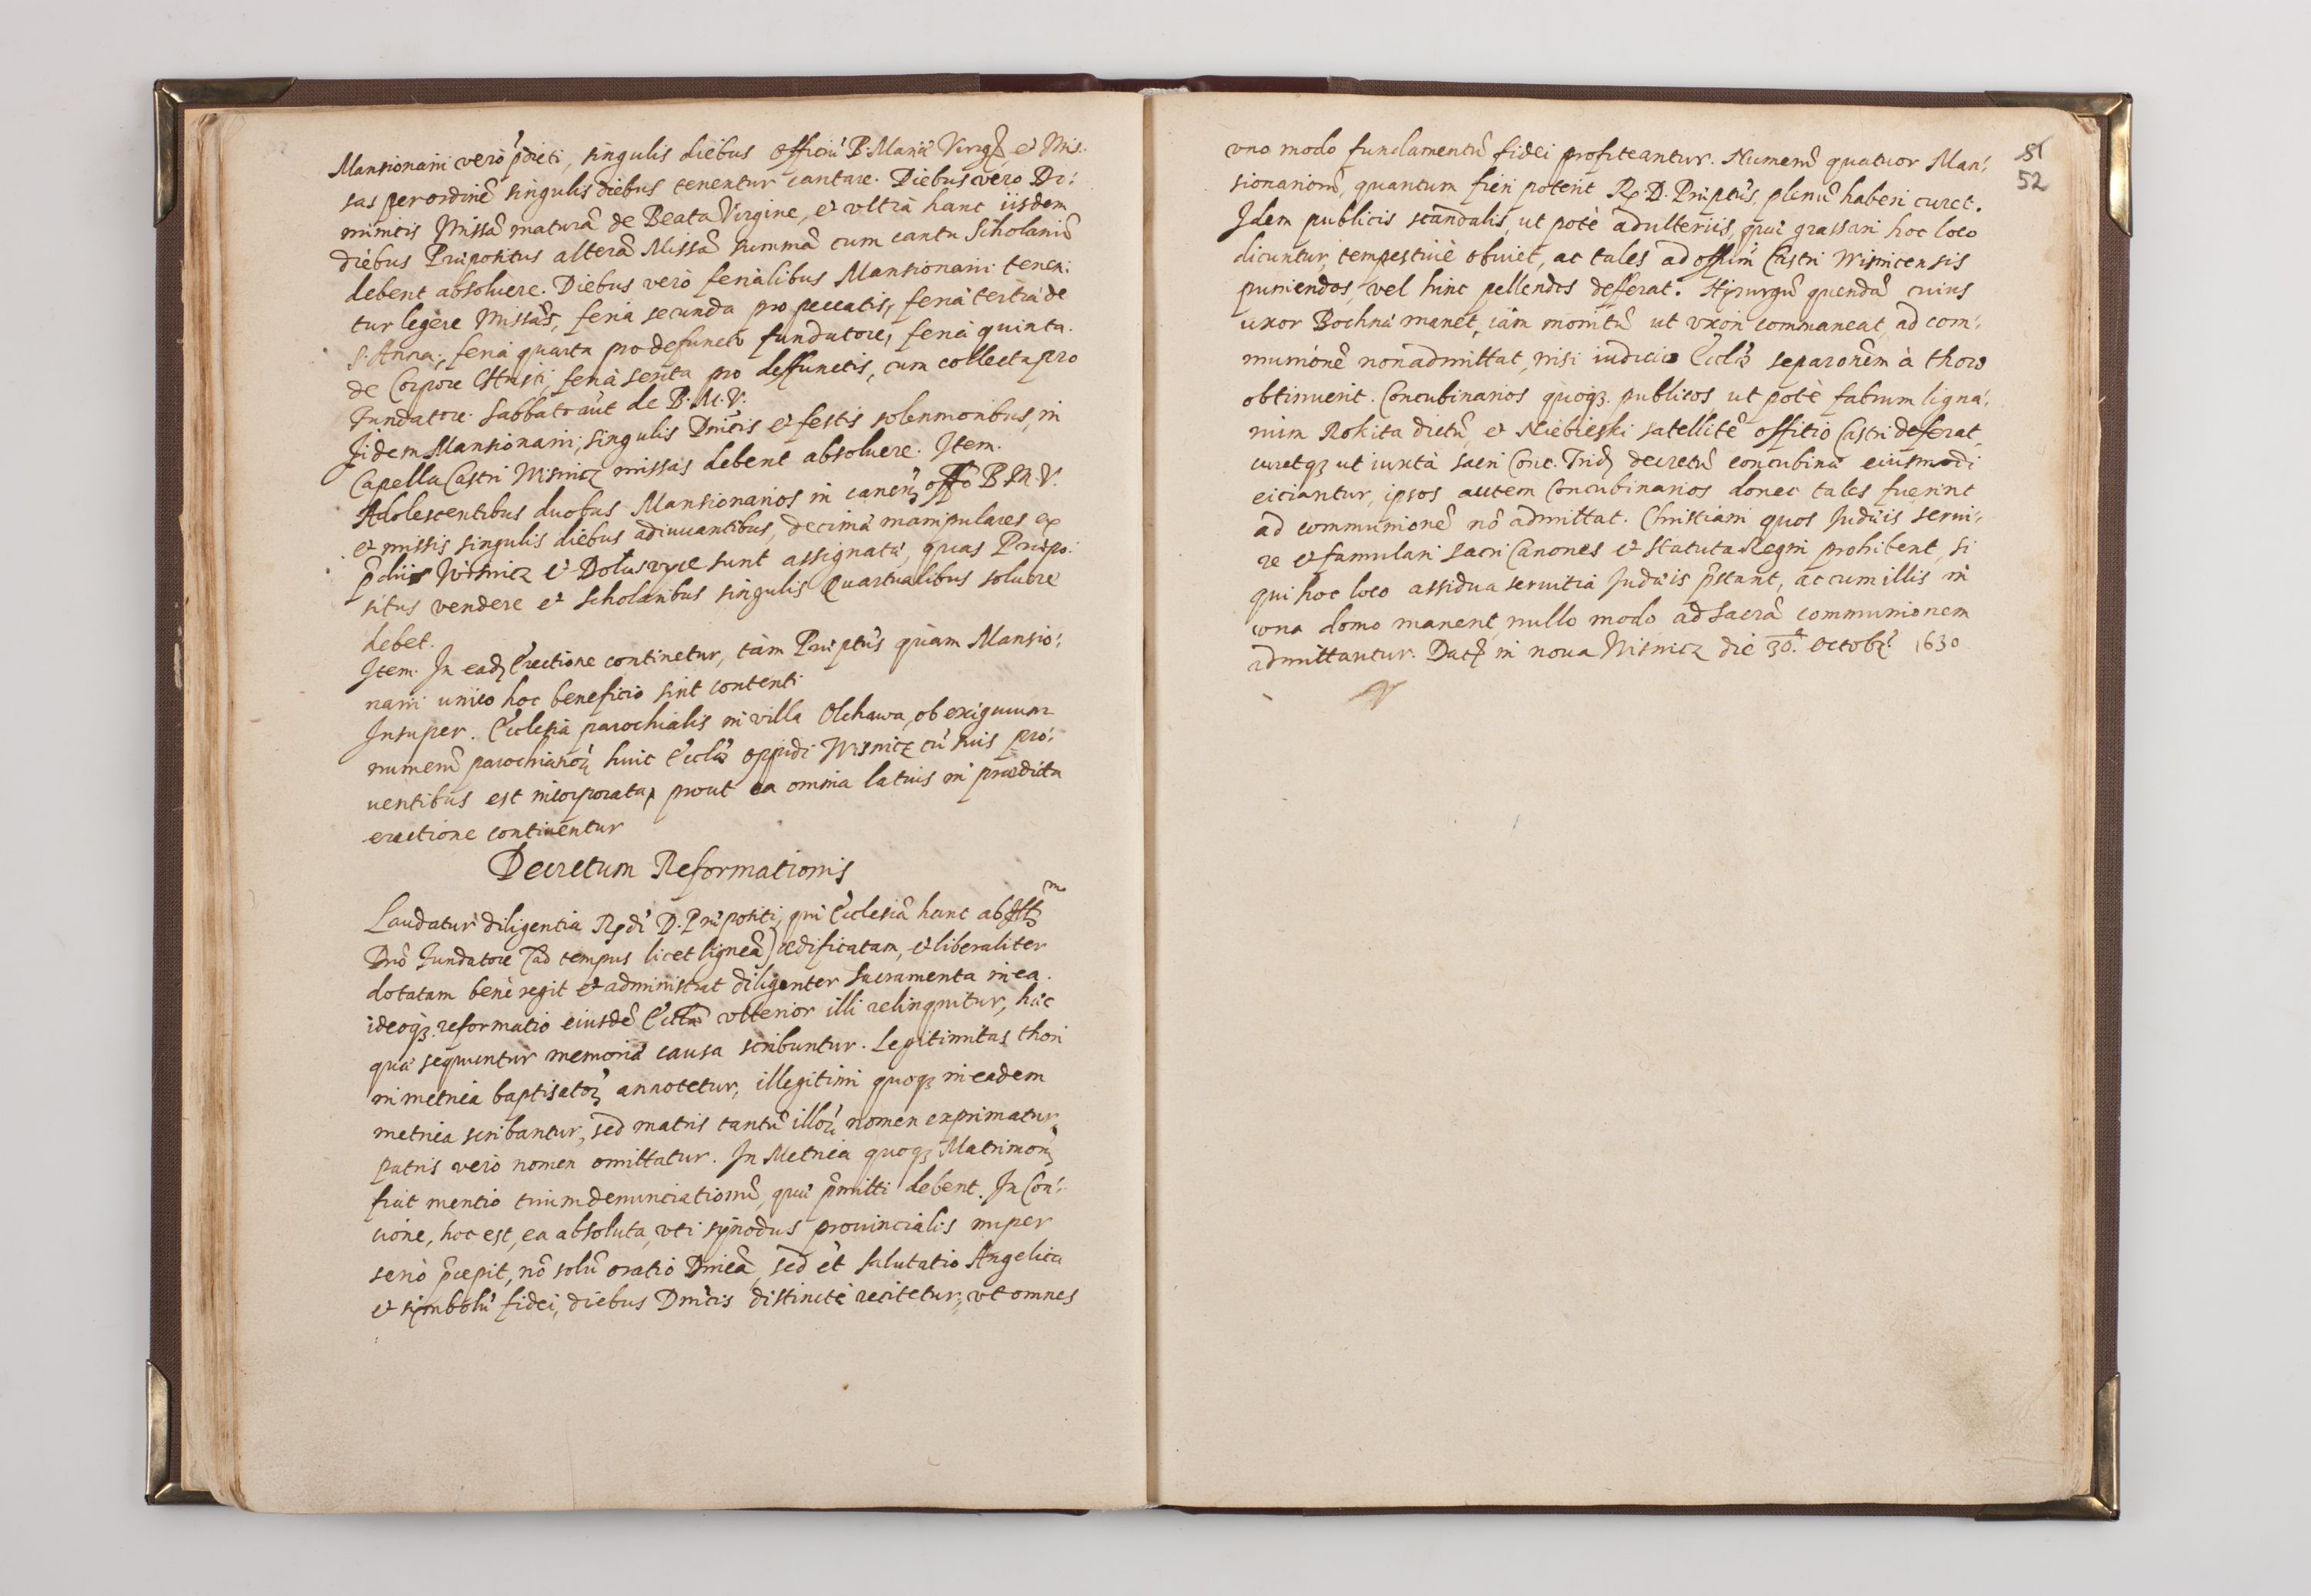 Mansionarij verò p̃dicti, singulis diebus Officiũ B. Mariæ Virgĩs, et Mis:
sas per ordinẽ singulis diebus tenentur cantare. Diebus vero Do:
minicis Missã maturã de Beata Virgine, et vltrà hanc iisdem
diebus Præpositus alterã Missã summã cum cantu Scholariũ
debent absoluere. Diebus verò ferialibus Mansionarij tenen:
tur legere Missas, feria secunda pro peccatis, feria tertia de
S. Anna, feria quarta pro defuncto fundatore, feria quinta
de Corpore Christi, feria sexta pro deffunctis, cum collecta pro
Fundatore. Sabbato aut̃ de B. M. V.
Iidem Mansionarij singulis Dnĩcis et festis solenmoribus, in
Capella Castri Wisnicz missas debent absoluere. Item.
Adolescentibus duobus Mansionarios in canẽn. offo B M. V.
et missis singulis diebus adiuuantibus, decimæ manipulares ex
p̃dijs Wisnicz et Doluszyce sunt assignatæ, quas Præpo:
situs vendere et Scholaribus singulis Quartualibus soluere
debet.
Item. In eadẽ Erectione continetur, tàm Præptũs quàm Mansio:
narij unico hoc beneficio sint contenti
Insuper. Ecclesia parochialis in villa Olchawa, ob exiguum
numerũ parochianorũ huic Ecclæ oppidi Wisnicz cũ suis pro:
uentibus est incorporata, prout ea omnia latius in prædicta
erectione continentur
Decretum Reformationis
Laudatur diligentia Rdi D. Præpositi, qui Ecclesiã hanc ab Illr̃mo
Dnõ Fundatore (ad tempus licet ligneã) ædificatam, et liberaliter
dotatam benè regit et administrat diligenter Sacramenta in ea.
ideoq3 reformatio eiusdẽ Ecclæ vlterior illi relinquitur, hæc
quæ sequuntur memoriæ causa scribuntur. Legitimitas thori
in metrica baptisatorũ annotetur, illegitimi quoq3 in eadem
metrica scribantur, sed matris tantũ illorũ nomen exprimatur,
patris verò nomen omittatur. In Metrica quoq3 Matrimoñ
fiat mentio trium denunciationũ, quæ p̃mitti debent. In Con:
cione, hoc est, ea absoluta, vti synodus prouincialis nuper
seriò p̃cepit, nõ solũ oratio Dnĩca, sed et̃ Salutatio Angelica
et symbolũ fidei, diebus Dnĩcis distinctè recitetur, vt omnes
51
52
vno modo fundamentũ fidei profiteantur. Numerũ quatuor Man:
sionariorũ, quantum fieri poterit R. D. Præptũs, plenũ haberi curet.
Idem publicis scandalis, ut potè adulteriis, quæ grassari hoc loco
dicuntur, tempestiuè obuiet, ac tales ad offium Castri Wisnicensis
puniendos, vel hinc pellendos defferat. Hyrurgũ quendã cuius
uxor Bochnæ manet, iam monitũ ut vxori commaneat, ad com:
munionẽ non admittat, nisi iudicio Ecclæ separonẽm à thoro
obtinuerit. Concubinarios quoq3 publicos, ut potè fabrum ligna:
rium Rokita dictũ, et Niebieski satellitẽ offitio Castri deferat,
curetq3 ut iuxtà sacri Conc. Trid. decretũ concubinæ eiusmodi
eiciantur, ipsos autem Concubinarios donec tales fuerint
ad communionẽ nõ admittat. Christiani quos Judæis serui:
re et famulari sacri Canones et statuta Regni prohibent, si
qui hoc loco assidua seruitia Judæis p̃stant, ac cum illis in
vna domo manent, nullo modo ad Sacrã communionem
admittantur. Dat̃ in noua Wisnicz die 30. Octobr̃ 1630